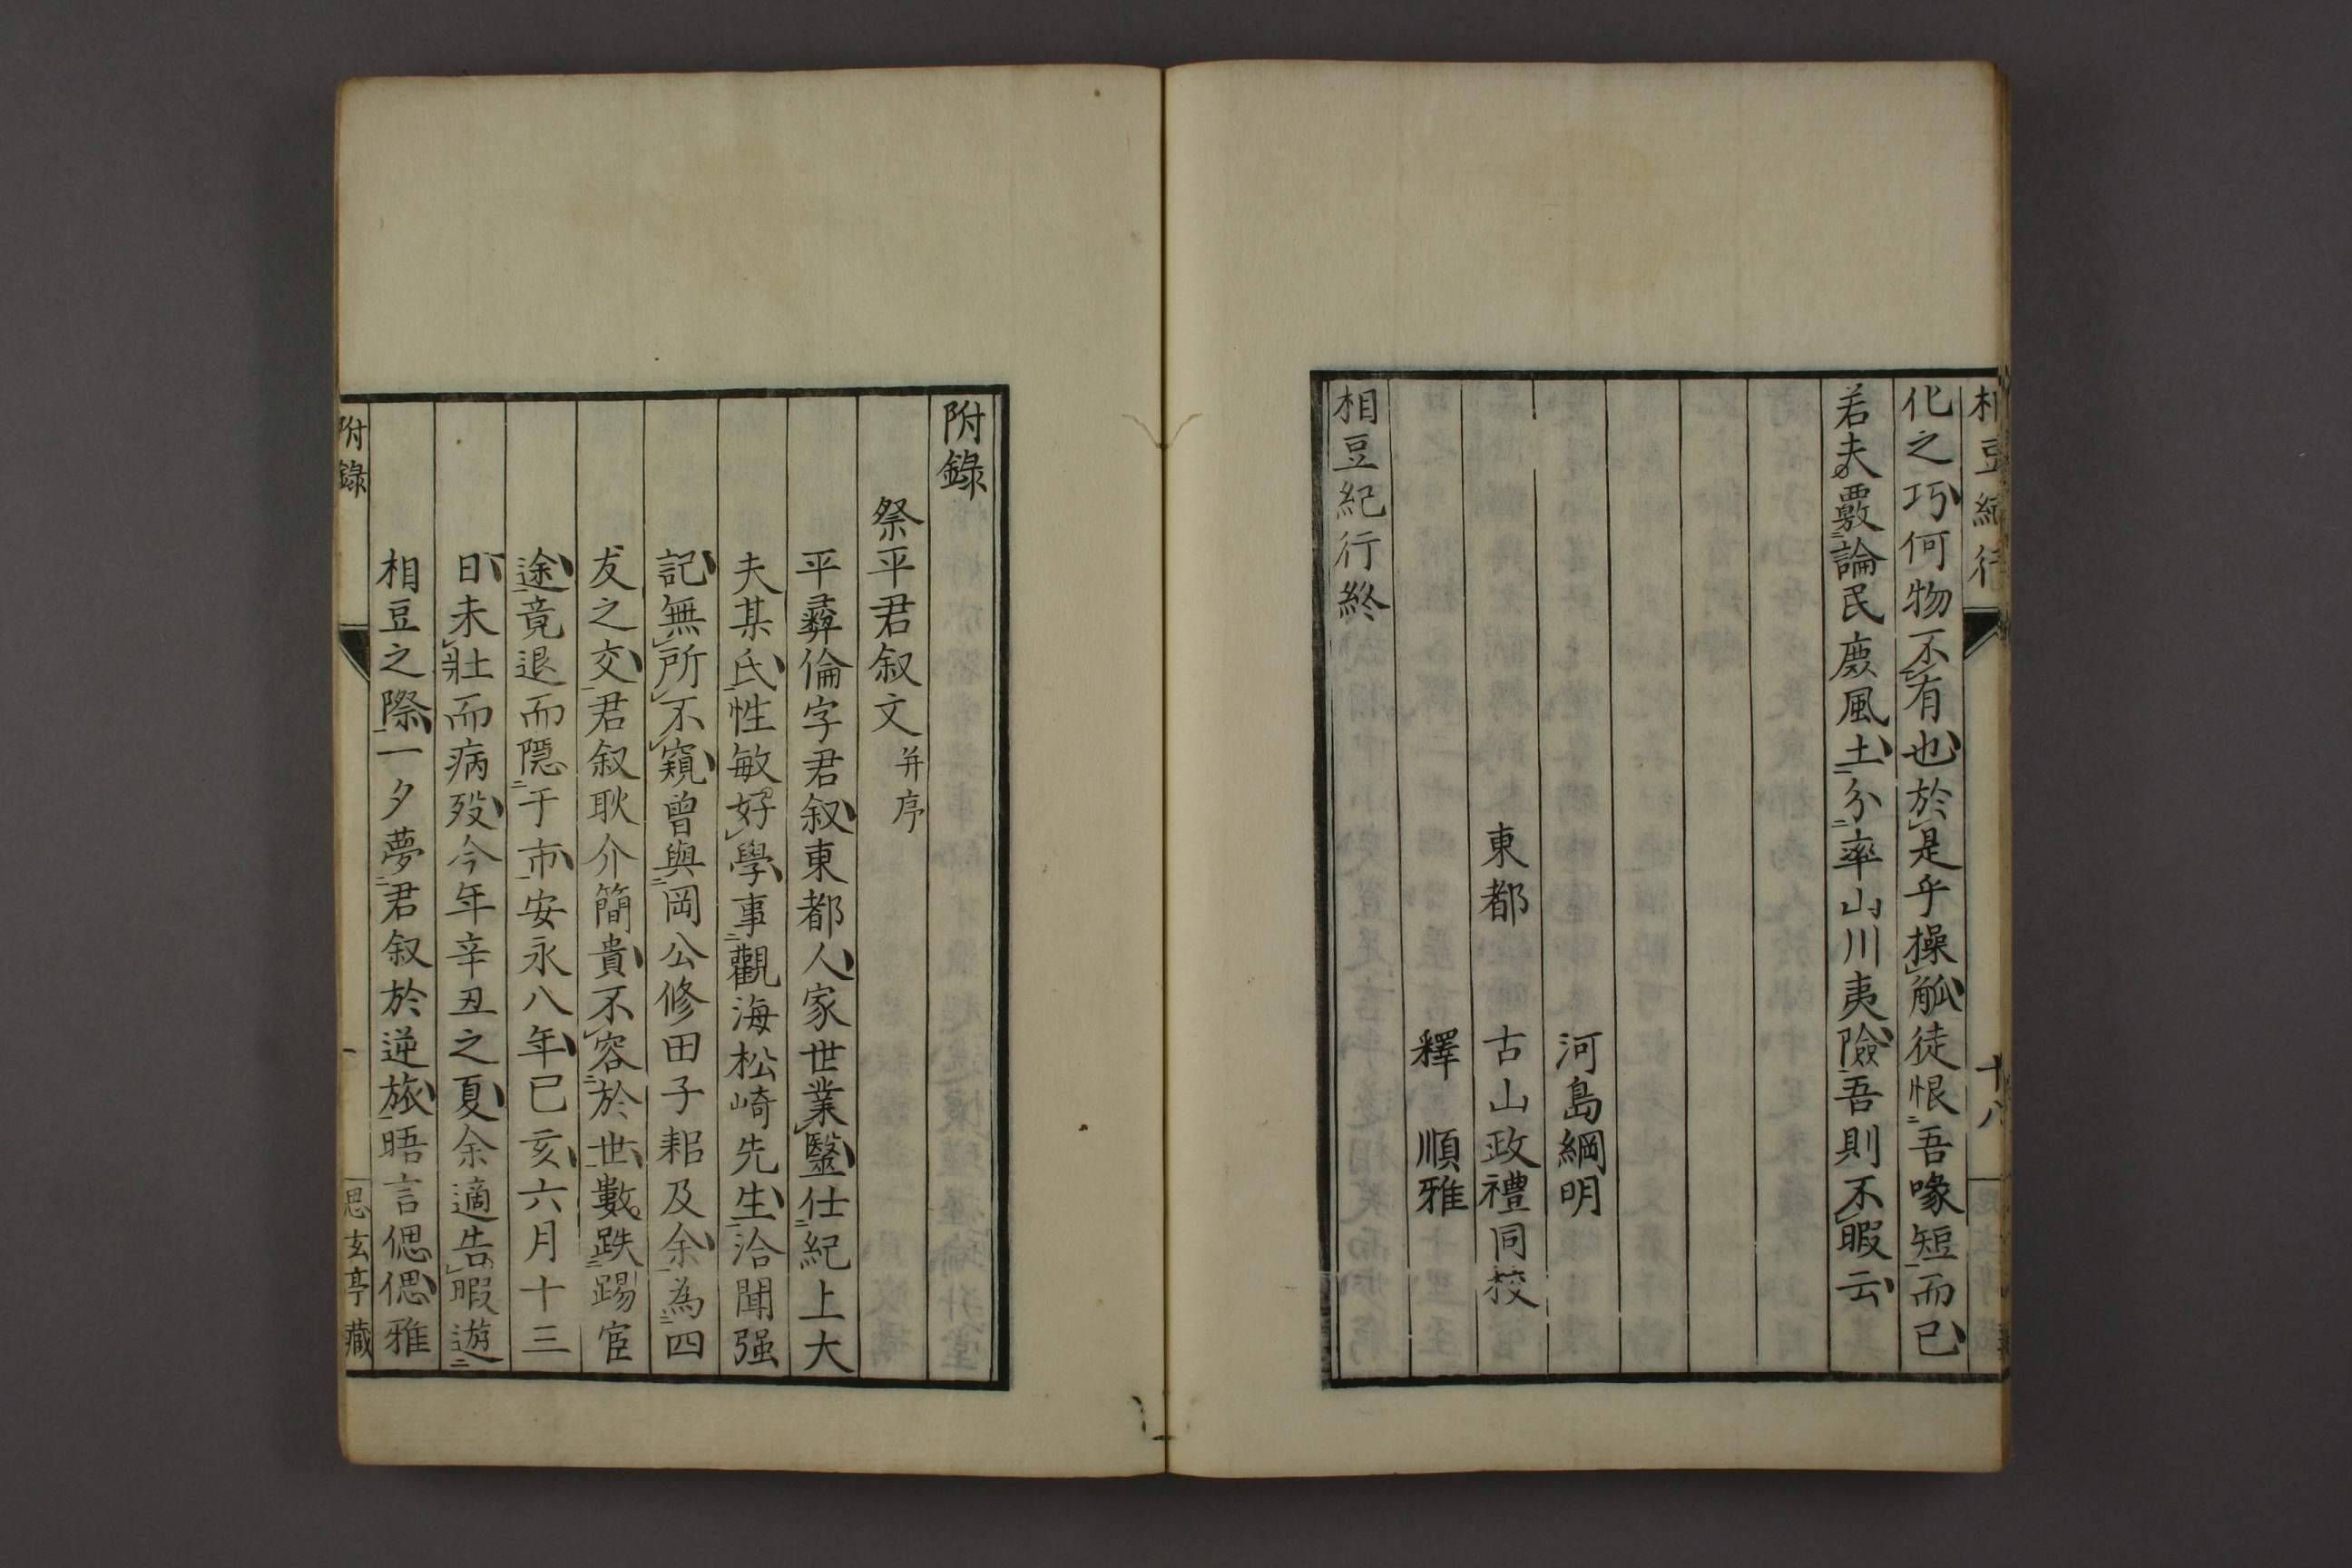 相豆紀行
十八
化之巧何物不有也於是乎操觚徒恨吾喙短而已
若夫覈論民庶風土分率山川夷險吾則不暇云
河島綱明
東都 古山政禮同校
釋 順雅
相豆紀行終
附錄
祭平君叙文 并序
平彝倫字君叙東都人家世業醫仕紀上大
夫某氏性敏好學事觀海松崎先生洽聞强
記無所不窺曾與岡公修田子耜及余為四
友之交君叙耿介簡貴不容於世數跌踢宦
途竟退而隱于市安永八年己亥六月十三
日未壯而病歿今年辛丑之夏余適告暇遊
相豆之際一夕夢君叙於逆旅晤言偲偲雅
附錄
一
思玄亭藏